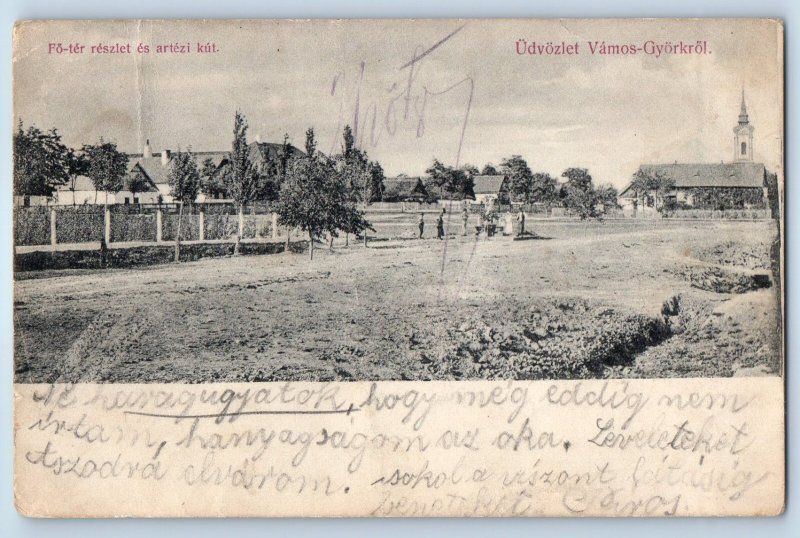 Fő-tér részlet és artézi kút.
Üdvözlet Vámos-Györkről.
Ne haragugyatok, hogy még eddig nem
irtam, hanyagságom az oka. Leveleteket
Aszodrá elvárom. sokol a viszont látásig
benneteket Piros.